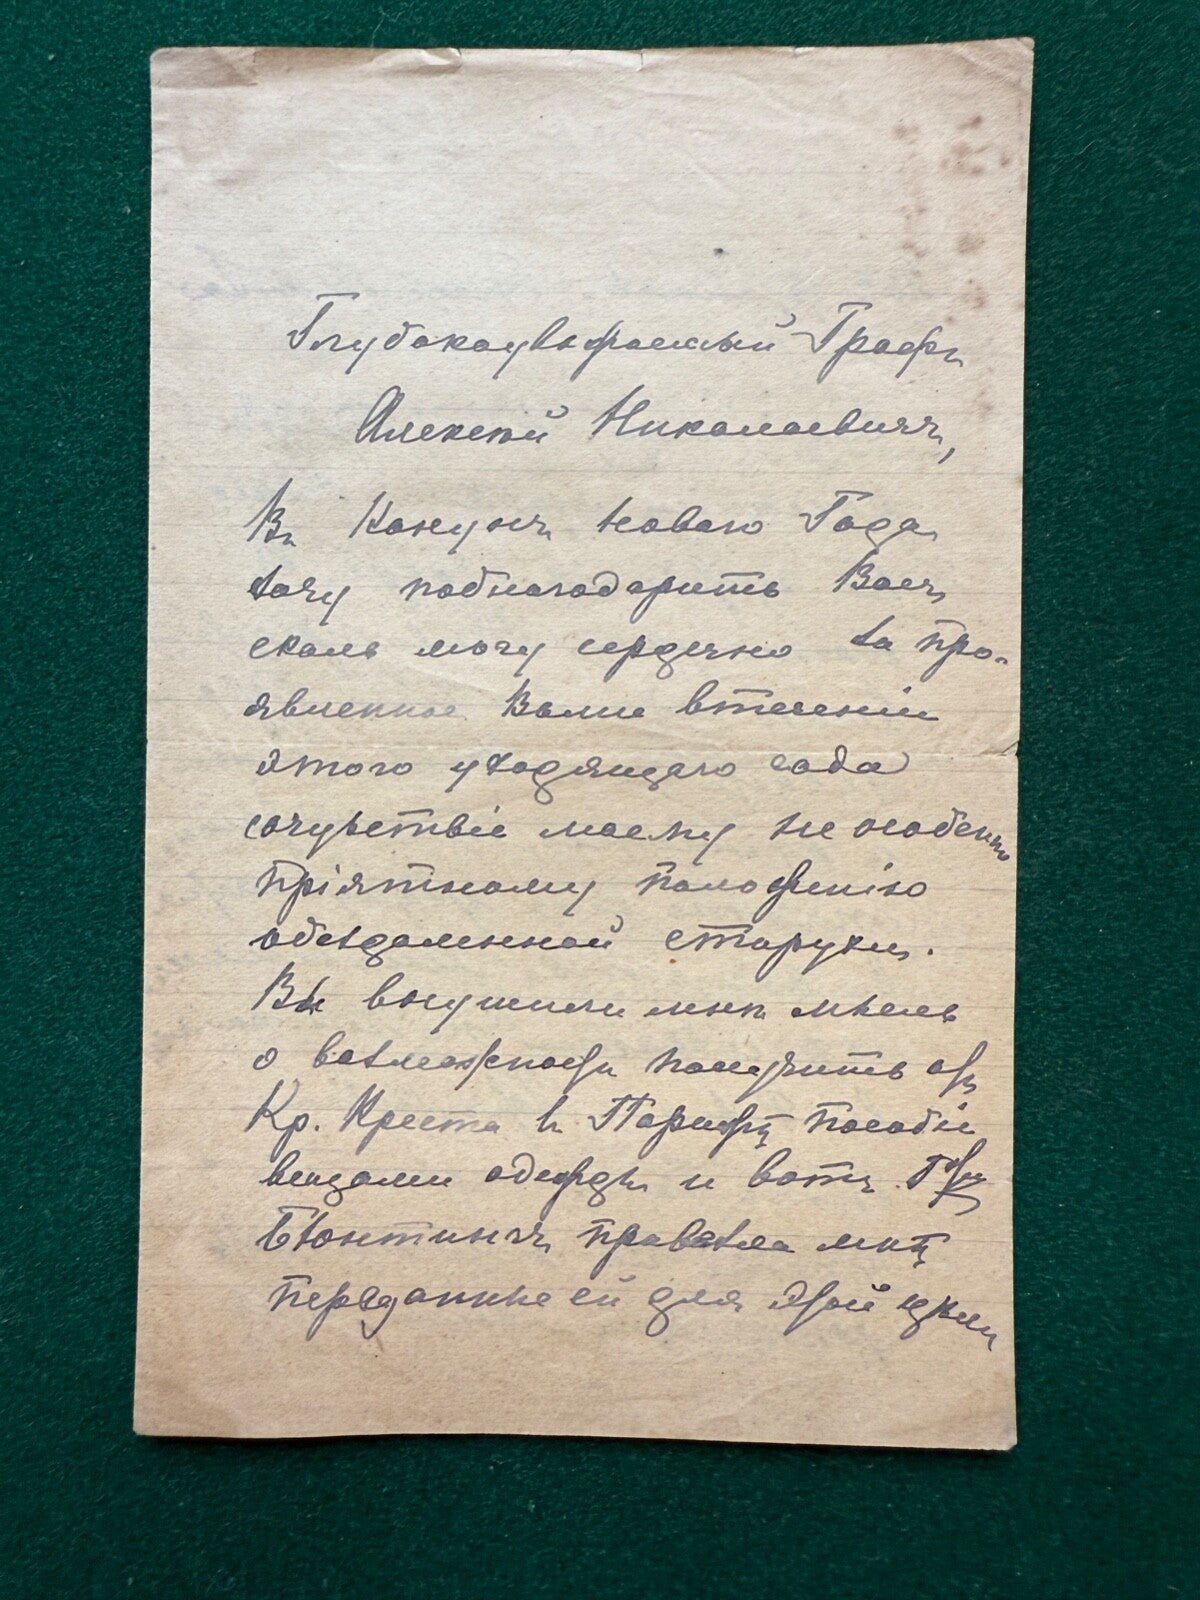 Глубокоуважаемый Графъ
Алексѣй Николаевичъ,
Въ Канунъ Новаго Года
хочу поблагодарить Васъ,
сколь могу сердечно за про-
явленное Вами втеченіи
этого уходящаго года
сочувствіе моему не особенно
пріятному положенію
обездоленной старухи.
Вы внушили мнѣ мысль
о возможности получить отъ
Кр. Креста въ Парижѣ пособіе
вещами одежды и вотъ Гр.
привезла мнѣ
переданные ей для этой цѣли